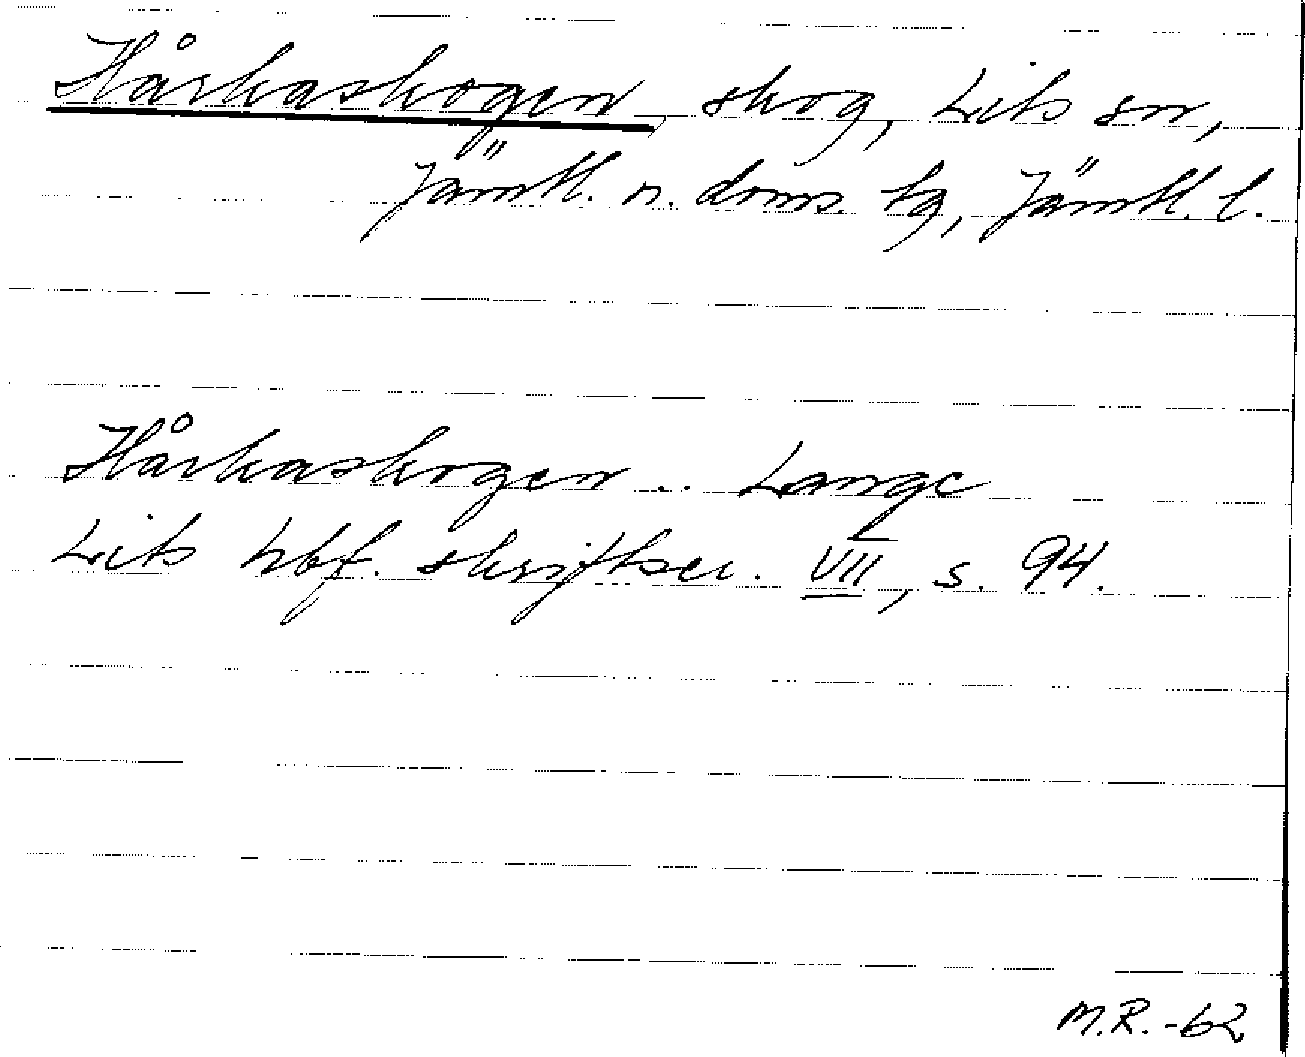 Hårkaskogen, skog, Lits sn,
Jämtl. n. doms. tg, Jämtl. l.
Hårkaskogen .. Lange
Lits hbf. skriftser. VII, s. 94.
M.R.-62